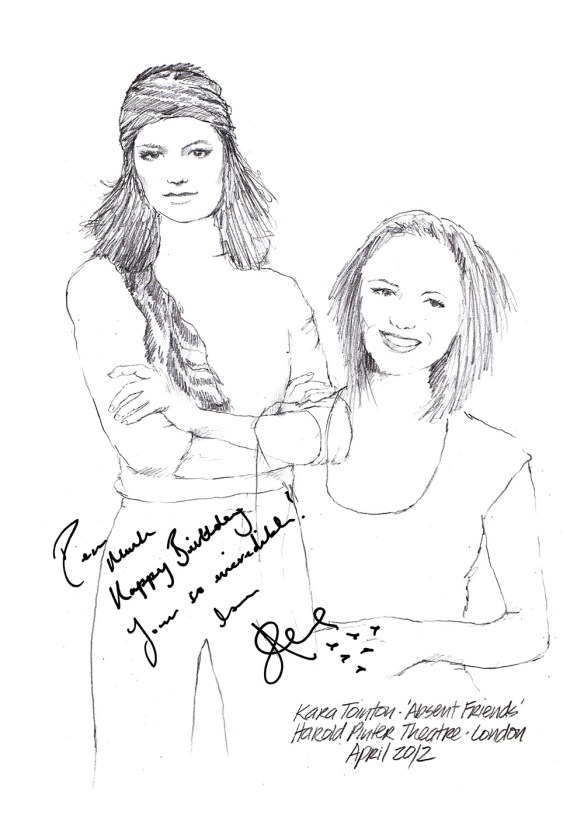 Dear Mark
Happy Birthday
Your so incredible!
Kara Tointon · 'Absent Friends'
Harold Pinter Theatre · London
April 2012